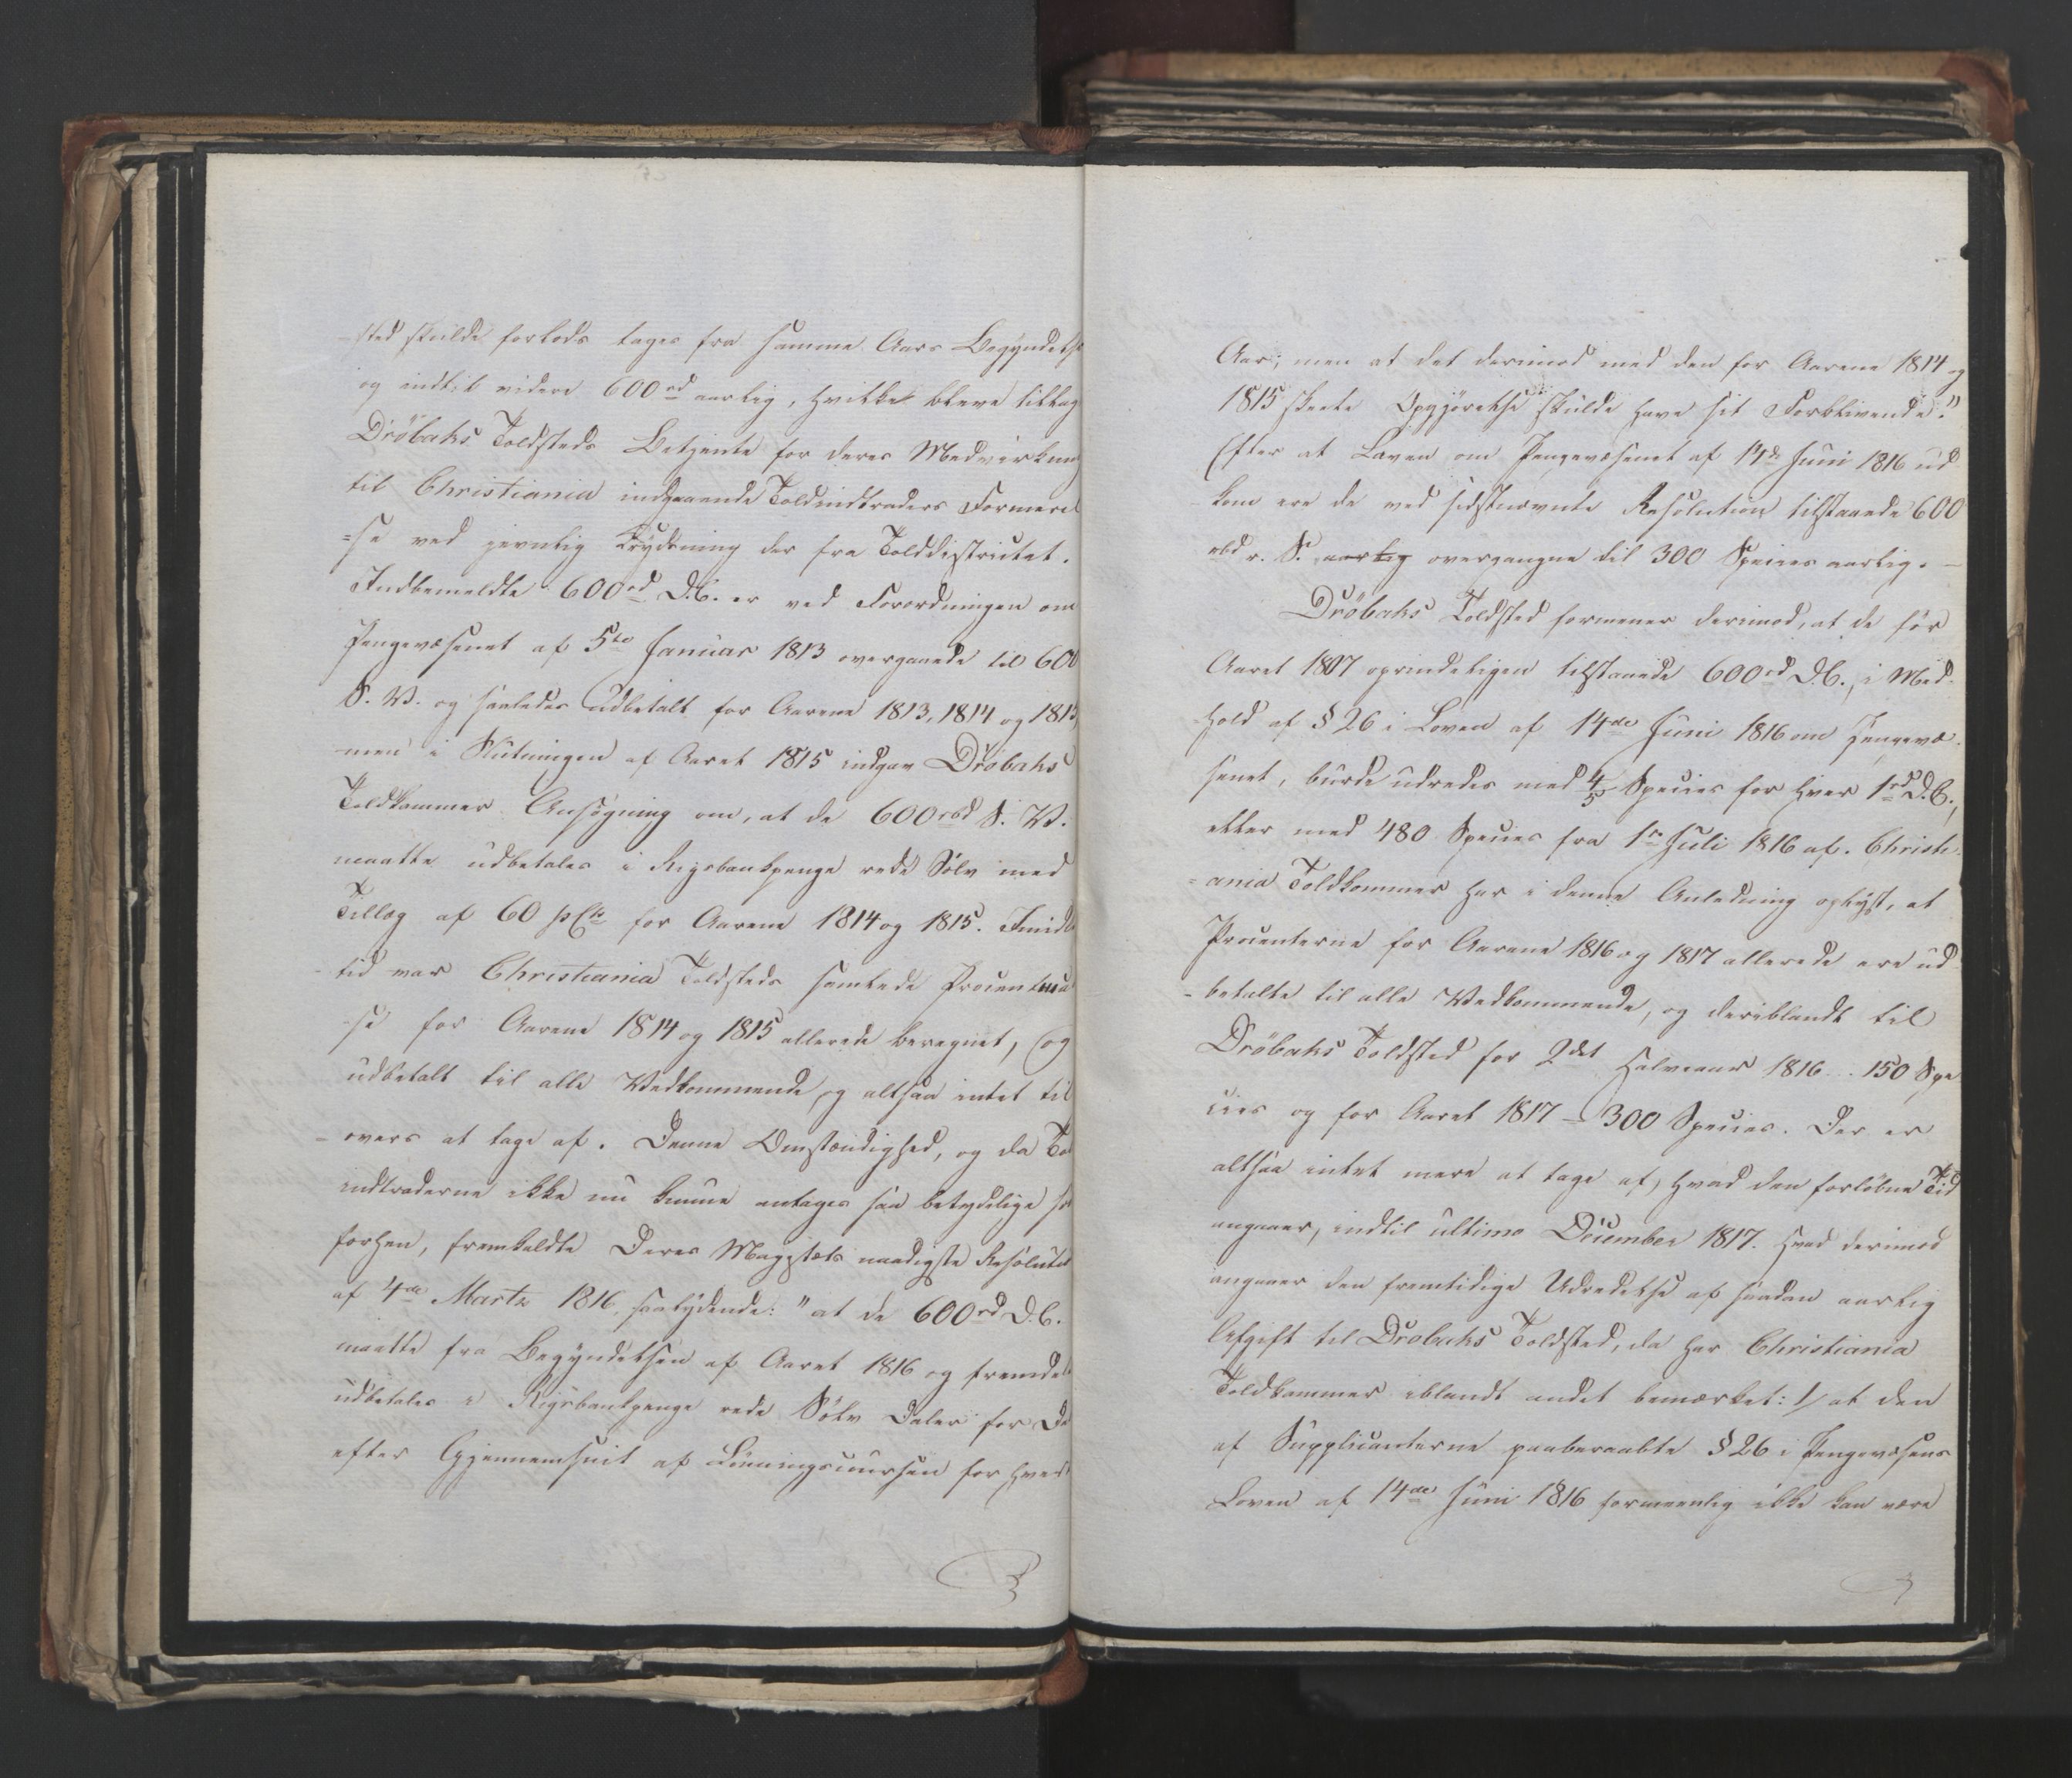 -sted skulde forlods tages fra samme Aars Begyndelse
og indtil videre 600rd aarlig, hvilke bleve tillagt
Dröbaks Toldsteds Betjente for deres Medvirkning
til Christiania indgaaende Toldindtraders Formerel
=se ved jevnlig Krydsning der fra Tolddistrictet.
Indbemeldte 600rd D.C. er ved Forordningen om
Pengevæsenet af 5te Januar 1813 overgaaede til 600
S. V. og saaledes udbetalt for Aarene 1813, 1814 og 1815,
men i Slutningen af Aaret 1815 indgav Dröbaks
Toldkammer Ansögning om, at de 600rbd S. V.
maatte udbetales i Rigsbankpenge rede Sölv med
Tillæg af 60 pCt for Aarene 1814 og 1815. Imidler
-tid var Christiania Toldsteds samlede Procentnyd
-se for Aarene 1814 og 1815 allerede beregnet, og
udbetalt til alle Vedkommende, og altsaa intet til
-overs at tage af. Denne Omstændighed, og da Told
indtraderne ikke nu kunne antages saa betydelige som
forhen, fremkaldte Deres Majestæts naadigste Resolution
af 4de Marts 1816, saalydende: "at de 600rd D.C.
maatte fra Begyndelsen af Aaret 1816 og fremdeles
udbetales i Rigsbankpenge rede Sölv Daler for Daler
efter Gjennemsnit af Lönningscoursen for hvert

Aar; men at det derimod med den for Aarene 1814 og
1815 skeete Opgjörelse skulde have sit Forblivende."
Efter at Loven om Pengevæsenet af 14de Juni 1816 ud
kom ere de ved sidstnævnte Resolution tilstaaede 600
rbd r. S. aarlig overgangne til 300 Species aarlig. -
Dröbaks Toldsted formener derimod, at de för
Aaret 1807 oprindeligen tilstaaede 600rd D.C., i Med-
hold af § 26 i Loven af 14de Juni 1816 om Pengevæ
senet, burde udredes med 4/5 Species for hver 1rd D.C.,
eller med 480 Species fra 1ste Juli 1816 af. Christi-
=ania Toldkammer har i denne Anledning oplyst, at
Procenterne for Aarene 1816 og 1817 allerede ere ud
-betalte til alle Vedkommende, og deriblandt til
Dröbaks Toldsted for 2det Halvaar 1816 .. 150 Spe
cies og for Aaret 1817 - 300 Species. Der er
altsaa intet mere at tage af, hvad den forløbne Tid
angaaer, indtil ultimo December 1817. Hvad derimod
angaaer den fremtidige Udredelse af saadan aarlig
Afgift til Dröbaks Toldsted, da har Christiania
Toldkammer iblandt andet bemærket: 1/ at den
af Supplicanterne paaberaabte § 26 i Pengevæsens
Loven af 14de Juni 1816 formeenlig ikke kan være